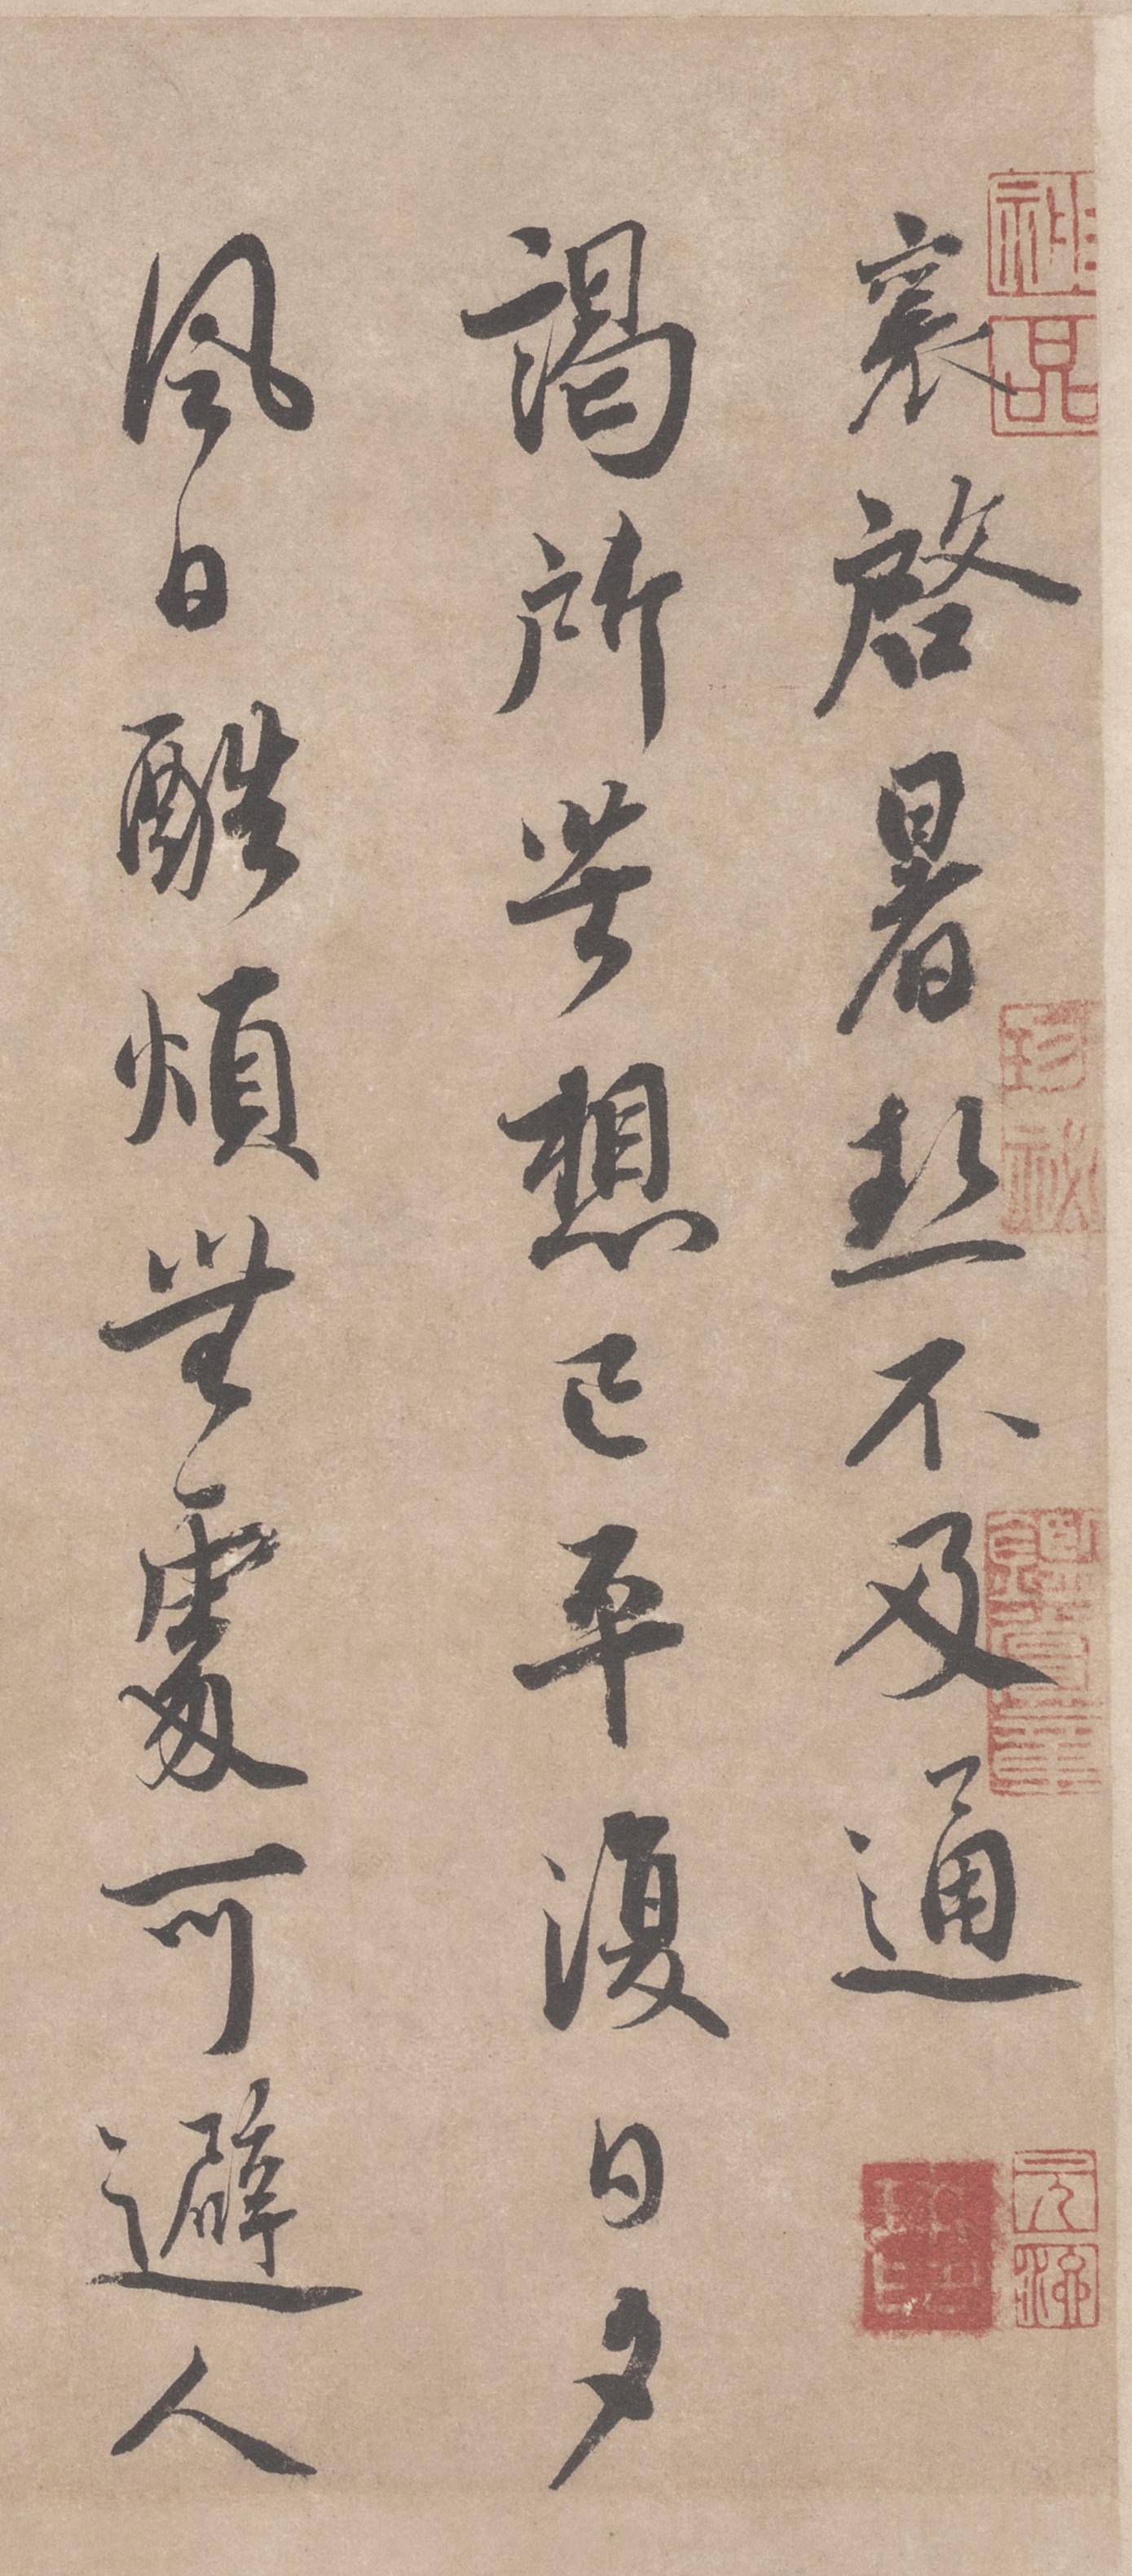 襄啓暑熱不及通
謁所苦想已平復日夕
風日酷煩無處可避人
珍祕